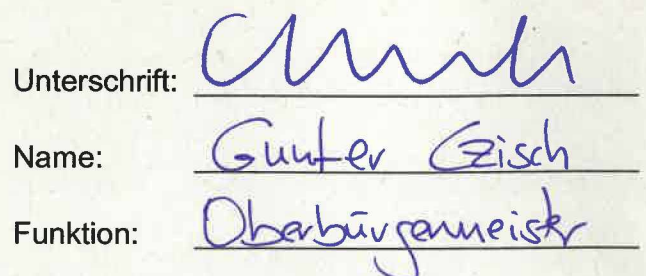 Unterschrift:
Name: Gunter Czisch
Funktion: Oberbürgermeister